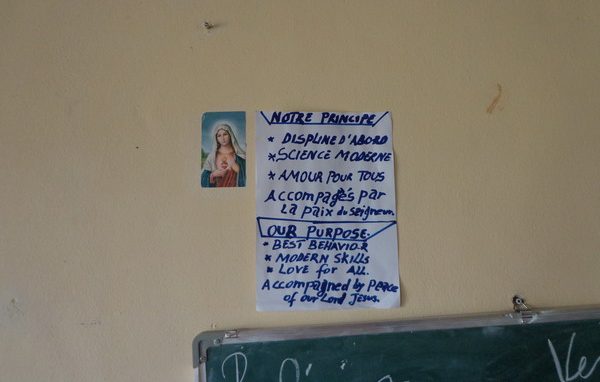 NOTRE PRINCIPE
* DISPLINE D'ABORD
* SCIENCE MODERNE
* AMOUR POUR TOUS
Accompagés par
La paix du Seigneur.
OUR PURPOSE.
* BEST BEHAVIOR
* MODERN SKILLS
* LOVE for ALL.
Accompagned by Peace
of our Lord Jesus.
Ve